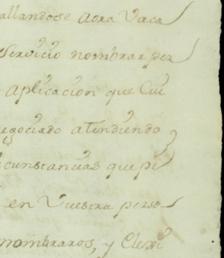 allandose aora vaca
servicio nombrar per
aplicacion que
negociado atendiendo
cunstancias que pi
en vuestra perso
nombraros, y